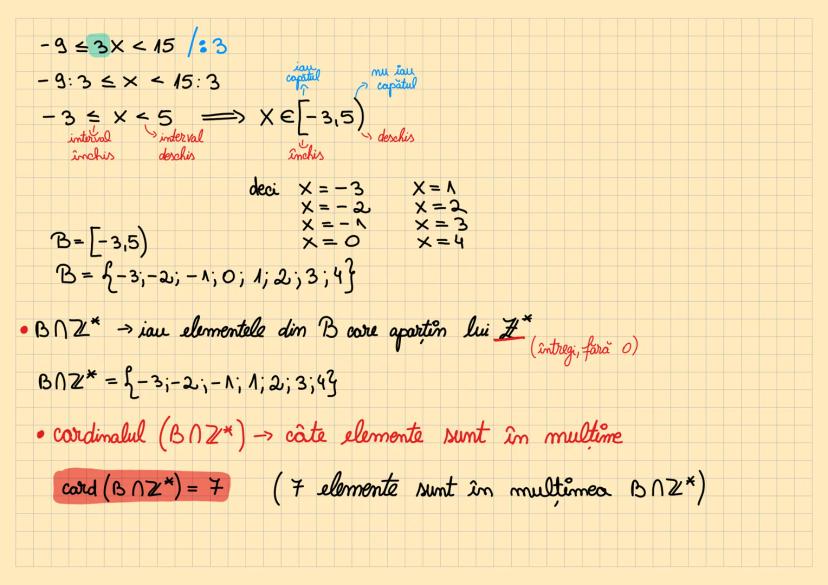 -9 ≤ 3x < 15 /:3
-9:3 ≤ x < 15:3
iau capătul
nu iau capătul
-3 ≤ x < 5 ⟹ x ∈ [-3,5)
interval închis
interval deschis
închis
deschis
deci x = -3 x = 1
x = -2 x = 2
x = -1 x = 3
x = 0 x = 4
B = [-3,5)
B = {-3;-2;-1;0;1;2;3;4}
• B∩ℤ* → iau elementele din B care aparțin lui ℤ*
(întregi, fără 0)
B∩ℤ* = {-3;-2;-1;1;2;3;4}
• cardinalul (B∩ℤ*) → câte elemente sunt în mulțime
card(B∩ℤ*) = 7 (7 elemente sunt în mulțimea B∩ℤ*)